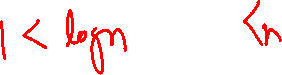 1 < logn < n